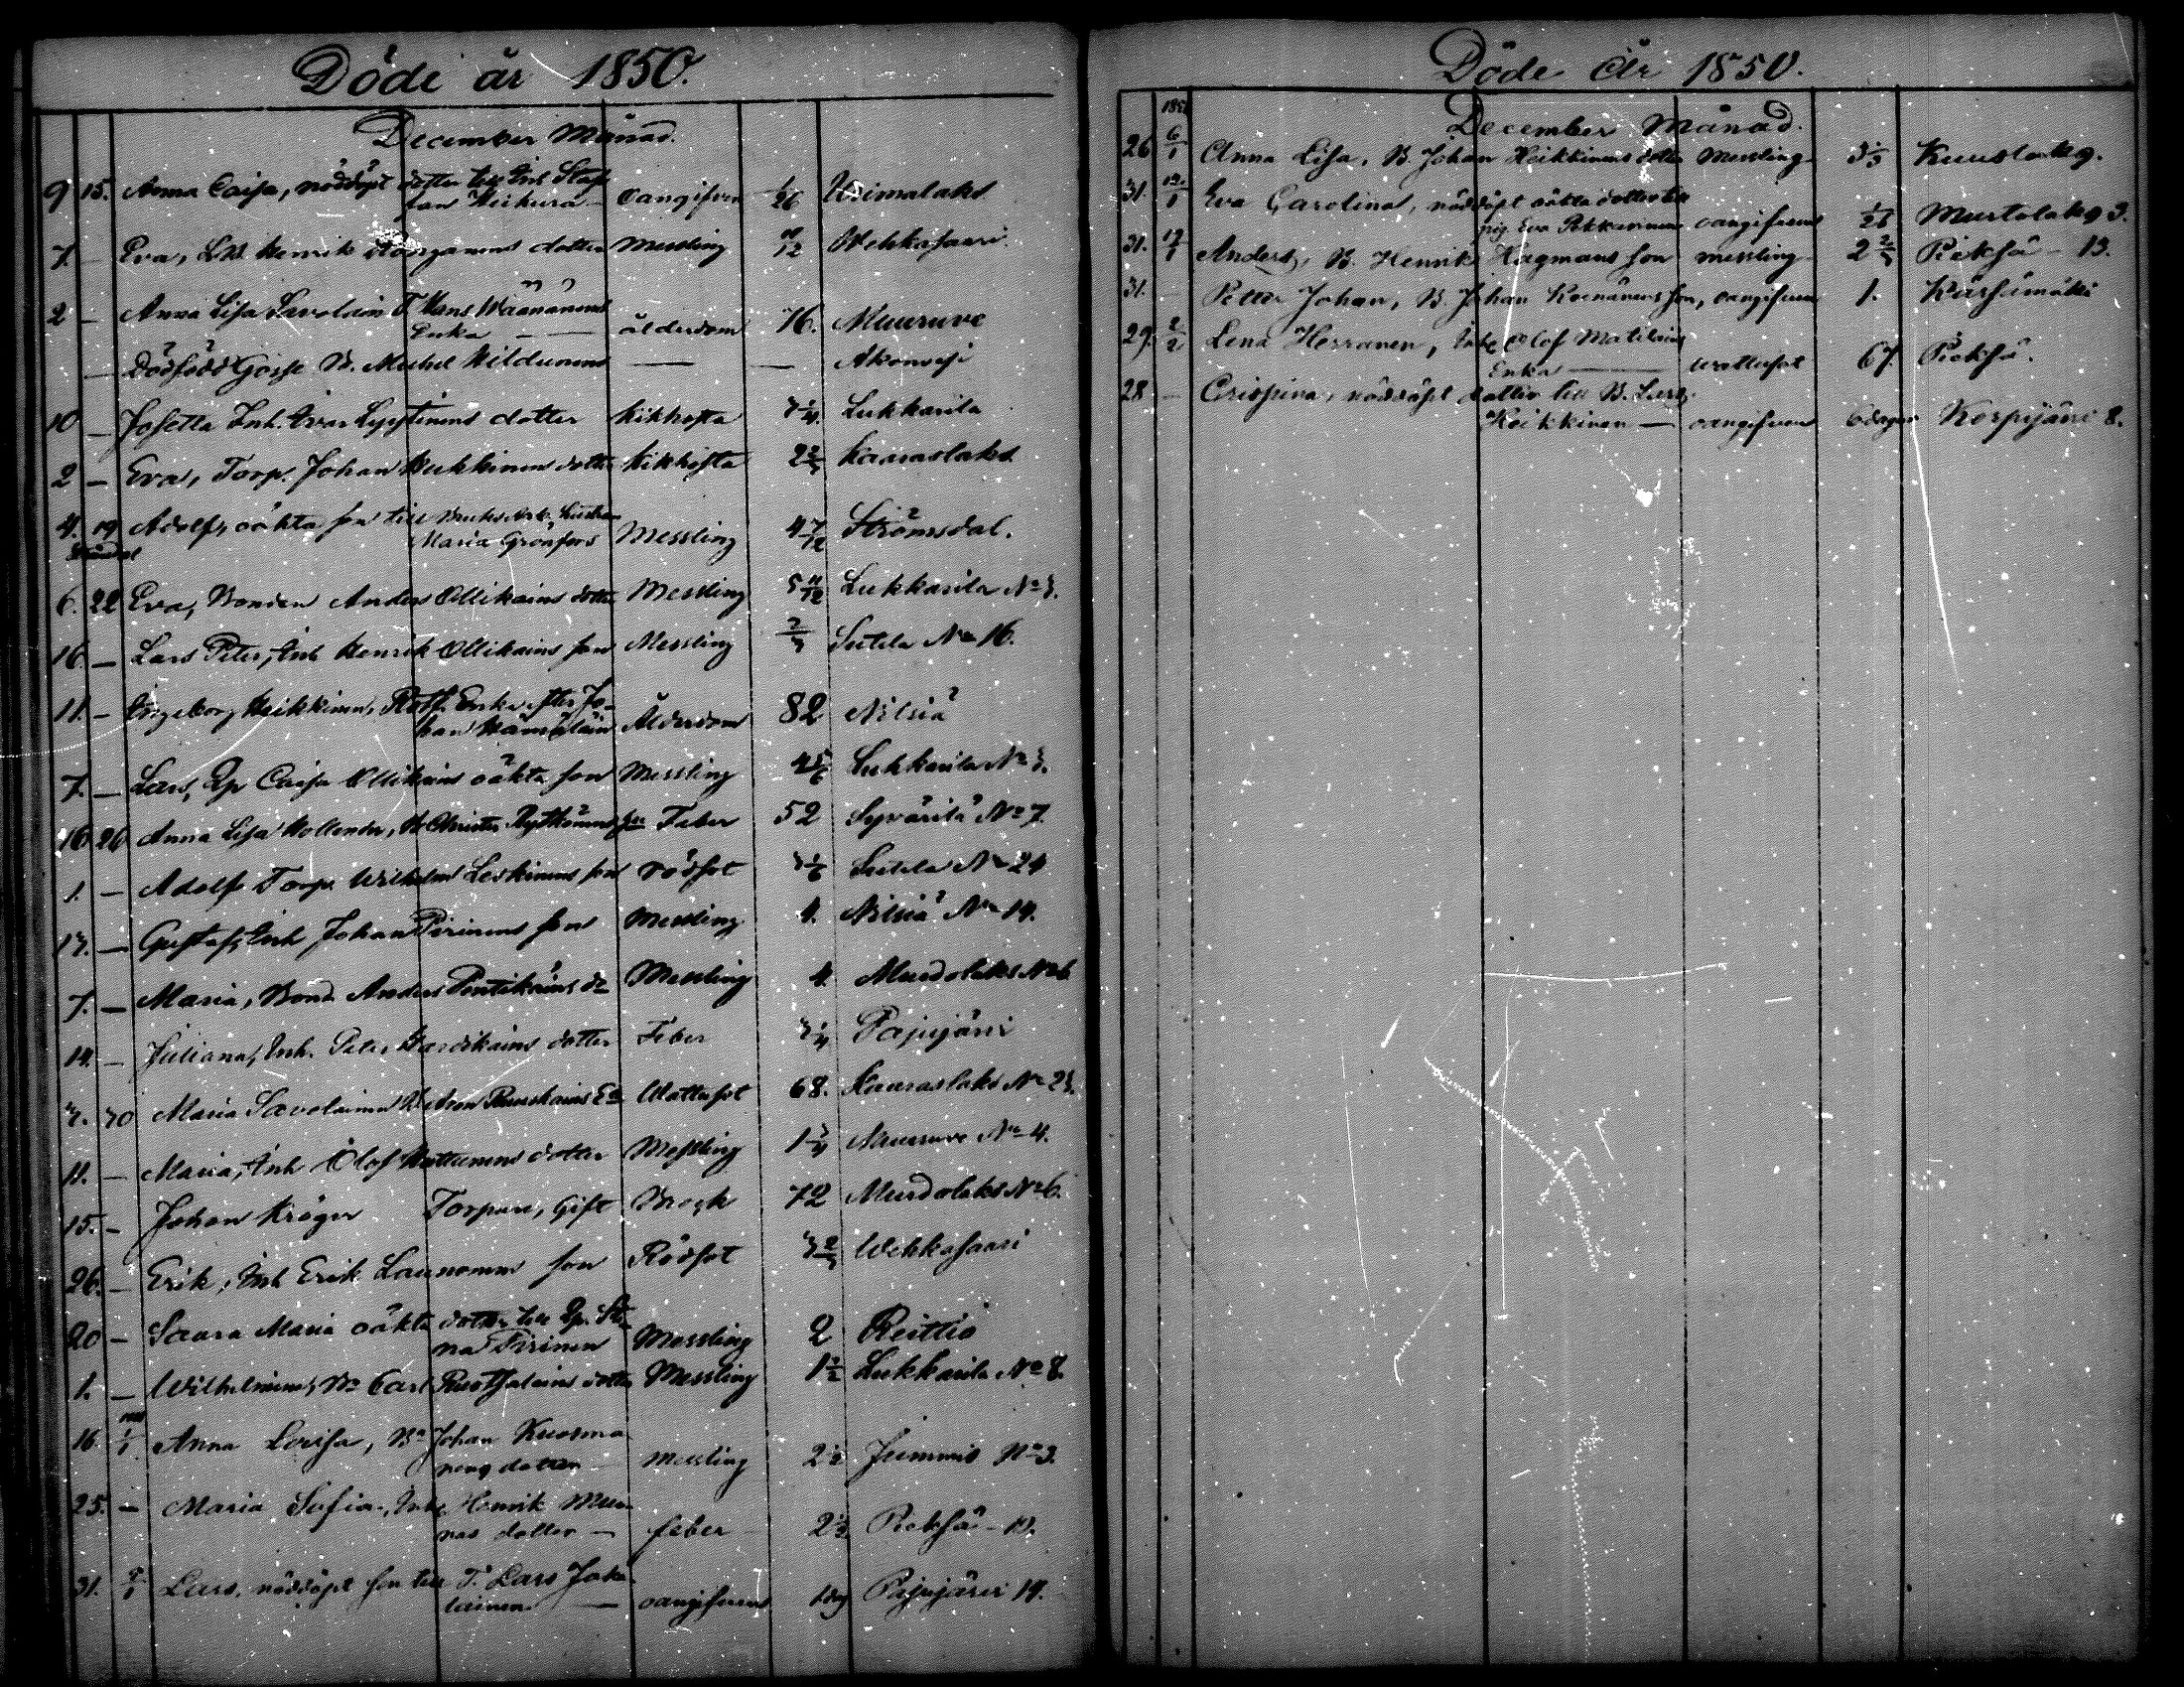 Döde år 1850.
December Månad.
9 15. Anna Caisa, nöddöpt dotter till Inh Staf
fan Heikura oangifven 1/26 Wiimalaks
7. — Eva, Henrik dotter Messling 10/12 Wehkasaari
2 — Anna Lisa Savolain T Mans Wäänänens
Enka — ålderdom 76. Muuruve
— Dödfödd Gosse B. Michel — — Akonvesi
10 — Josetta Inh. Ivar dotter kikhosta 3 1/4. Lukkarila
2 — Eva, Torp. Johan dotter kikhosta 2 2/3 Kaaraslaks
4. 19 Adolf, oäkta son till Bruks Arb. Enkan
Maria Grönfors Messling 4 7/12 Strömsdal.
6. 22 Eva, Bonden Anders Ollikains dotter Messling 5 11/12 Lukkarila No 3.
16. — Lars Peter, Inh Henrik Ollikains son Messling 2/3 Sutela No 16.
11. — Ingeborg Heikkinen, Rotf. Enka efter Jo-
han Hämäläin Ålderdom 82 Nilsiä
7. — Lars, Qp Caisa Ollikains oäkta son Messling 4 5/6 Lukkarila No 3.
16 26 Anna Lisa Hollender, Christer Rytkönens Feber 52 Syvärilä No 7
1. — Adolf Torp. Wilhelm Leskinens son rödsot 3 1/6 Sutela No 24
17. — Gustaf, Inh Johan Pirinens son Messling 4. Nilsiä No 14.
7. — Maria, Bond Anders Pentikäins dr Messling 4 Murdolaks No 6
14. — Juliana, Inh. Peter dotter Feber 3 1/4 Pajujärvi
7. 30 Maria Savolainen Aron Ea Wattusot 68. Kaaraslaks No 23.
11. — Maria, Inh Olof dotter Messling 1 3/4 Muuruve No 4.
15. — Johan Kröger Torpare, Gift Brock 72 Murdolaks No 6.
26. — Erik, Inh Erik Launonens son Rödsot 3 2/3 Wehkasaari
20 — Saara Maria oäkta dotter till Qp. Sti
na Pirinen Messling 2 Reittiö
1. — Wilhelmina, Bn Carl Ruotsalains dotter Messling 1 1/2 Lukkarila No 8.
16. 1/1 Anna Lovisa, Bn Johan Kuosma
nens dotter — Messling 2 1/2 Juminis No 3.
25. — Maria Sofia, Inh Henrik Muo
nas dotter — feber 2 1/3 Pieksä — 10.
31. 5/1 Lars, nöddöpt son till T. Lars Joke
lainen — oangifvens 1 dag Pajujärvi 14.
Döde År 1850.
December Månad.
1851
26 6/1 Anna Lisa, B. Johan Heikkinens dotter Messling 3 1/3 Kuuslaks 9.
31. 12/1 Eva Carolina, nöddöpt oäkta dotter till
pig. Eva Pekkarinen oangifvens 1/26 Murtolaks 3.
31. 19/1 Anders, B. Henrik Hagmans son messling 2 2/3 Pieksä — 13.
31. — Petter Johan, B. Johan son, oangifven 1. Kärsämäki
29. 2/2 Lena Herranen, Inh Olof Matilains
Enka — wattusot 67. Pieksä.
28 — Crispina, nöddöpt dotter till B. Lars
Heikkinen — oangifven 6 dagar Korpijärvi 8.